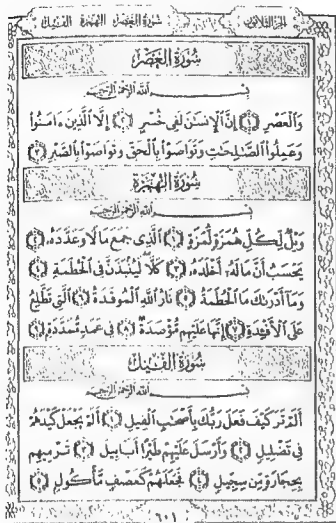 الجزء الثلاثون سورة العصر الهمزة الفيل
سورة العصر
بسم الله الرحمن الرحيم
وَالْعَصْرِ ۝١ إِنَّ الْإِنسَانَ لَفِي خُسْرٍ ۝٢ إِلَّا الَّذِينَ ءَامَنُوا
وَعَمِلُوا الصَّالِحَاتِ وَتَوَاصَوْا بِالْحَقِّ وَتَوَاصَوْا بِالصَّبْرِ ۝٣
سورة الهمزة
بسم الله الرحمن الرحيم
وَيْلٌ لِّكُلِّ هُمَزَةٍ لُّمَزَةٍ ۝١ الَّذِي جَمَعَ مَالًا وَعَدَّدَهُ ۝٢
يَحْسَبُ أَنَّ مَالَهُ أَخْلَدَهُ ۝٣ كَلَّا لَيُنبَذَنَّ فِي الْحُطَمَةِ ۝٤
وَمَا أَدْرَاكَ مَا الْحُطَمَةُ ۝٥ نَارُ اللَّهِ الْمُوقَدَةُ ۝٦ الَّتِي تَطَّلِعُ
عَلَى الْأَفْئِدَةِ ۝٧ إِنَّهَا عَلَيْهِم مُّؤْصَدَةٌ ۝٨ فِي عَمَدٍ مُّمَدَّدَةٍ ۝٩
سورة الفيل
بسم الله الرحمن الرحيم
أَلَمْ تَرَ كَيْفَ فَعَلَ رَبُّكَ بِأَصْحَابِ الْفِيلِ ۝١ أَلَمْ يَجْعَلْ كَيْدَهُمْ
فِي تَضْلِيلٍ ۝٢ وَأَرْسَلَ عَلَيْهِمْ طَيْرًا أَبَابِيلَ ۝٣ تَرْمِيهِم
بِحِجَارَةٍ مِّن سِجِّيلٍ ۝٤ فَجَعَلَهُمْ كَعَصْفٍ مَّأْكُولٍ ۝٥
٦٠١